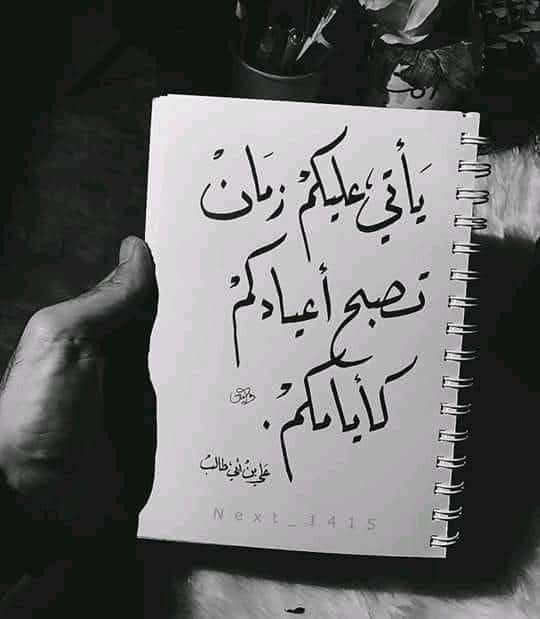 يَأتي عليكمْ زمَانْ
تصبح أعيادكمْ
كأيامكمْ .
علي بن أبي طالب
Next_1415